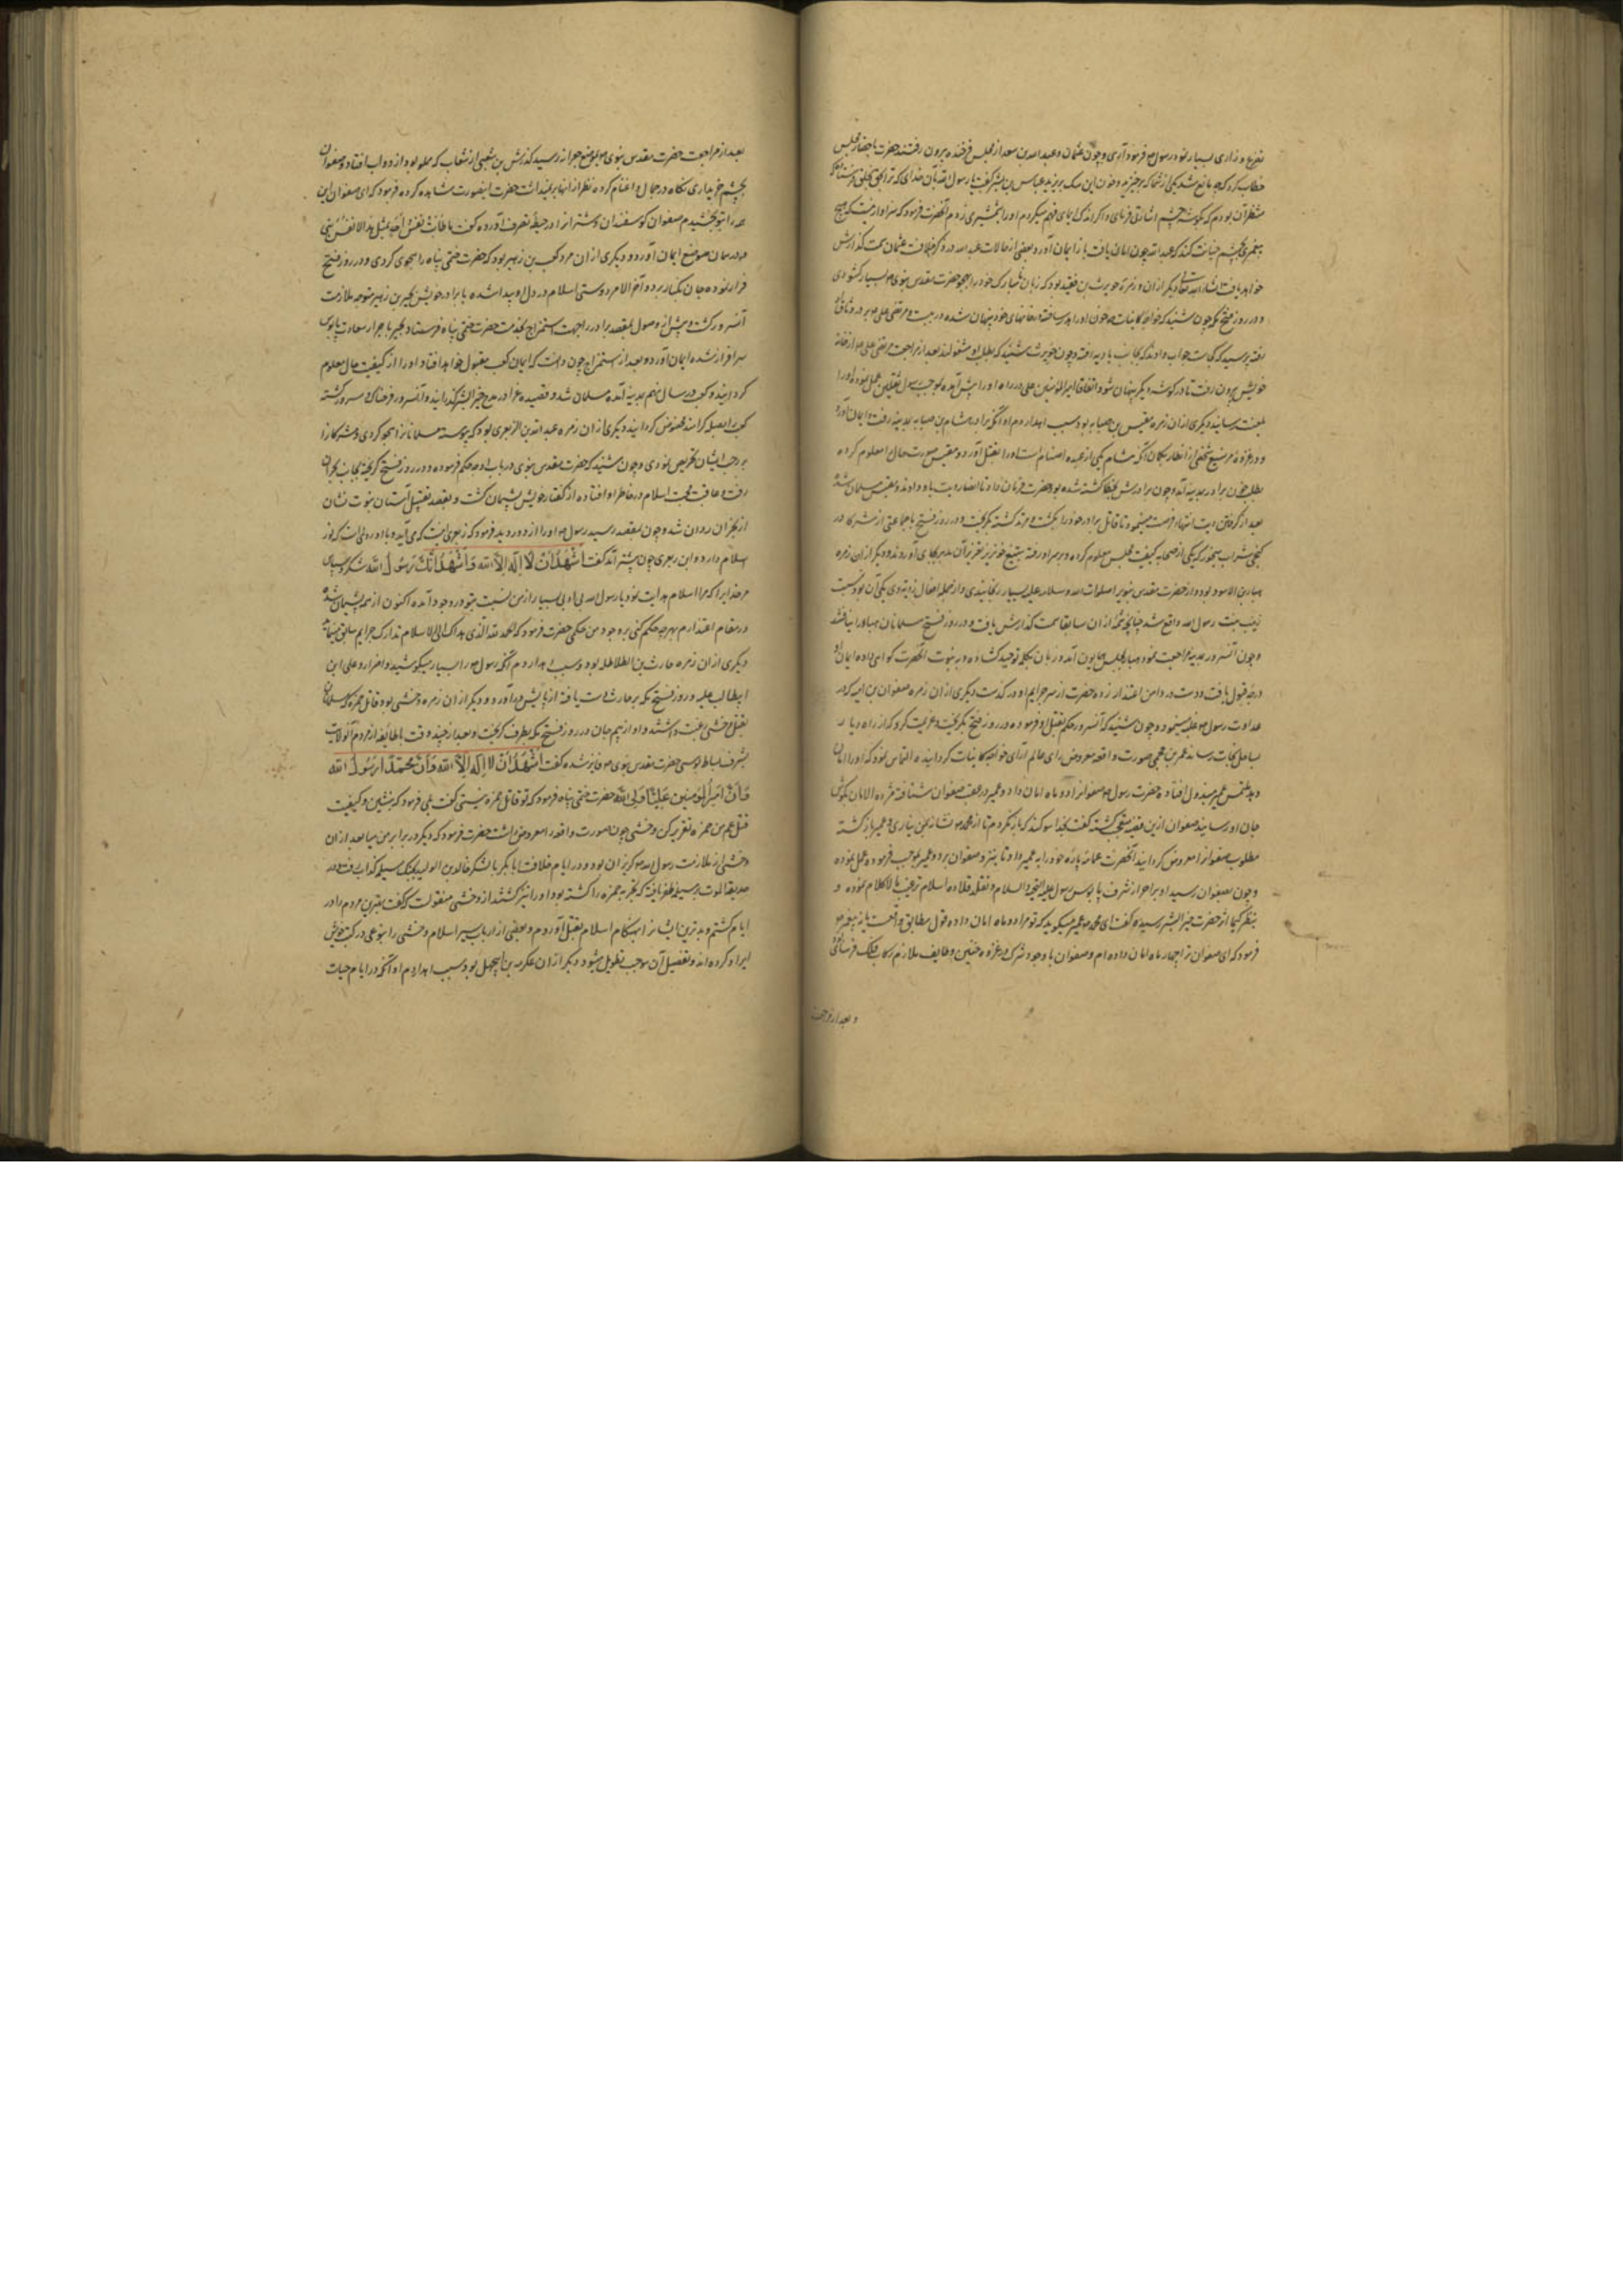 تضرع و زاری بسیار نمود رسول ص فرمود آری و چون عثمان و عبدالله بن سعد از مجلس فرخنده بیرون رفتند حضرت با حضار مجلس
خطاب کرد که چه مانع شد یکی از شما که برخیزد و خون این سک بریزد عباس بن بشر گفت یا رسول الله بآن خدای که ترا بحق بخلق فرستاد که
منتظر آن بودم که بگوشه چشم اشارتی فرمای و اگر اندک ایمای فهم میکردم او را بشمشیر می زدم آنحضرت فرمود که سزاوار نیست که هیچ
پیغمبری بچشم خیانت کند که عبدالله چون امان یافت باز ایمان آورد و بعضی از حالات عبدالله در ذکر خلافت عثمان سمت گذارش
خواهد یافت انشاء الله تعالی دیگر از ان زمره حویرث بن نقید بود که زبان نامبارک خود را بهجو حضرت مقدس نبوی ص بسیار گشودی
و در روز فتح مکه چون شنید که خواجه کاینات ص خون او را هدر ساخته در خانهای خود پنهان شده در ببست و مرتضی علی ع بر در وثاق او
رفته پرسید که کجاست جواب دادند که بجانب بادیه رفته و چون حویرث شنید که بطلب او مشغولند بعد از مراجعت مرتضی علی ع از خانه
خویش بیرون رفت تا در گوشه دیگر پنهان شود اتفاقا امیرالمؤمنین علی در راه او را پیش آمده بموجب رسول ثقلین عمل نمود و او را
بقتل رسانید دیگری از ان زمره مقیس بن صبابه بود و سبب اهدار دم او انکه برادرش هشام بن صبابه بمدینه رفت و ایمان آورد
و در غزوه مریسیع شخصی از انصار بکمان آنکه هشام یکی از عبده اصنام است او را بقتل آورد و مقیس صورت حال معلوم کرده
بطلب خون برادر بمدینه آمد و چون برادرش بخطا کشته شده بود حضرت فرمان داد تا انصار دیت باو دادند و مقیس مسلمان شد
بعد از گرفتن دیت انتهاز فرصت مینمود تا قاتل برادر خود را بکشت و مرتد کشته بمکه گریخت و در روز فتح با جماعتی از مشرکان در
کنجی شراب میخورد که یکی از صحابه کیفیت مجلس معلوم کرده و بر سر او رفته بتیغ خونریز آن مدبر بجای آورد و دیگر از ان زمره
هبار بن الاسود بود و از حضرت مقدس نبویرا صلوات الله و سلامه علیه بسیار رنجانیدی و از جمله افعال ردیه وی یکی آن بود که نسبت
زینب بنت رسول الله واقع شد چنانچه شمه از ان سابقا سمت گذارش یافت و در روز فتح مسلمانان هبار را نیافتند
و چون آنسرور بمدینه مراجعت نمود هبار بمجلس همایون آمد و زبان بکلمه توحید کشاده و به نبوت آنحضرت گواهی داده ایمان او
درجه قبول یافت و دست در دامن اعتذار زده حضرت از سر جرایم او در گذشت دیگری از ان زمره صفوان بن امیه که در
عداوت رسول ص غلو مینمود و چون شنید که آنسرور حکم بقتل او فرموده در روز فتح مکه گریخت و عزیمت کرد که از راه دریا
بساحل نجات رساند عمیر بن وهب جمحی صورت واقعه معروض رای عالم آرای خواجه کاینات گردانیده التماس نمود که او را امان
دهد ملتمس عمیر مبذول افتاده حضرت رسول ص صفوانرا دو ماه امان داد و عمیر در عقب صفوان شتافته مژده الامان بگوش
جان او رسانید صفوان ازین قضیه متعجب گشته گفت بخدا سوگند که باز نگردم تا از محمد ص نشانی بمن نیاری و عمیر بازگشته
مطلوب صفوانرا معروض گردانید آنحضرت عمامه پاره خود را به عمیر داد تا بنزد صفوان برد و عمیر بموجب فرموده عمل نموده
و چون بصفوان رسید او بر احراز شرف پابوس رسول علیه التحیه و السلام و تقلد قلاده اسلام ترغیب مالاکلام نموده و
بنظر کیما اثر حضرت خیر البشر رسیده گفت ای محمد عمیر میکوید که تو مرا دو ماه امان داده قول مطابق واقعست یا نه پیغمبر ص
فرمود که ای صفوان ترا چهار ماه امان داده ام و صفوان با وجود شرک در غزوه حنین و طایف ملازم رکاب فلک فرسای
و بعد از مراجعت
بعد از مراجعت حضرت مقدس نبوی ص بموضع جعرانه رسید گذارش بر شعبی از شعاب که مملو بود از دواب افتاد و صفوان
بچشم خریداری نگاه در جمال و اغنام کرده نظر از انها بر نمیداشت حضرت اینصورت مشاهده کرده فرمود که ای صفوان این
همه را بتو بخشیدم صفوان گوسفندان و شتران را در حیطه تصرف آورده گفت ما طابت نفس احد بمثل هذا الا نفس نبی
و در همان موضع ایمان آورد و دیگری از ان مردم کعب بن زهیر بود که حضرت ختمی پناه را هجوی کردی و در روز فتح
فرار نموده جان بکنار برده و آخر الامر دوستی اسلام در دل او پیدا شده با برادر خویش بجیر بن زهیر متوجه ملازمت
آنسرور گشت و پیش از وصول بمقصد برادر را بجهت استمزاج بخدمت حضرت ختمی پناه فرستاد و بجیر باحراز سعادت پابوس
سرافراز شده ایمان آورد و بعد از استمزاج چون دانست که ایمان کعب مقبول خواهد افتاد او را از کیفیت حال معلوم
گردانید و کعب در سال نهم بمدینه آمده مسلمان شد و قصیده غرا در مدح خیر البشر گذرانید و آنسرور فرحناک و مسرور گشته
کعب را بصله گرانمند مخصوص گردانید دیگری از ان زمره عبدالله بن الزبعری بود که پیوسته مسلمانانرا هجو کردی و مشرکانرا
بر حرب ایشان تحریص نمودی و چون شنید که حضرت مقدس نبوی در باب او چه حکم فرموده در روز فتح گریخته بجانب نجران
رفت و عاقبت محبت اسلام در خاطر او افتاده از گفتار خویش پشیمان گشت و بقصد تقبیل آستان نبوت نشان
از نجران روان شد و چون بمقصد رسید رسول ص او را از دور دید فرمود که زبعری اینست که می آید و با او رویی است که نور
اسلام دارد و ابن زبعری چون پیشتر آمد گفت اشهد ان لا اله الا الله و اشهد انک رسول الله شکر و سپاس
مر خدایرا که مرا اسلام هدایت نمود یا رسول الله بی ادبی بسیار از من نسبت بتو در وجود آمده اکنون از همه پشیمان شده
در مقام اعتذارم بهرچه حکم کنی بر وجود من حکمی حضرت فرمود که الحمد لله الذی هداک الی الاسلام تدارک جرایم سابق مینماید
دیگری از ان زمره حارث بن الطلاطله بود و سبب اهدار دم آنکه رسول ص را بسیار میکوشید و اضرار و علی ابن
ابیطالب علیه در روز فتح مکه بر حارث دست یافته از پایش در آورد و دیگر از ان زمره وحشی بود قاتل حمزه و مسلمانان
بقتل وحشی رغبت داشتند و او از بیم جان در روز فتح مکه بطرف گریخت و بعد از چند وقت با طایفه از مردم آنولایت
بشرف بساط بوسی حضرت مقدس نبوی ص فایز شده گفت اشهد ان لا اله الا الله و ان محمدا رسول الله
و ان امیر المومنین علیا ولی الله حضرت ختمی پناه فرمود که تو قاتل حمزه نیستی گفت بلی فرمود که بنشین و کیفیت
قتل عم من حمزه تقریر کن وحشی چون صورت واقعه را معروض داشت حضرت فرمود که دیگر در برابر من میا بعد از ان
وحشی از ملازمت رسول الله ص گریزان بود و در ایام خلافت ابابکر با لشکر خالد بن الولید بجنگ مسیلمه کذاب رفت و در
حدیقة الموت بر مسیلمه ظفر یافته که بحربه حمزه را کشته بود او را نیز کشتند از وحشی منقولست که گفت بهترین مردم را در
ایام کشتم و بدترین ایشانرا بهنگام اسلام بقتل آوردم و بعضی از ارباب سیر اسلام وحشی را بنوعی در کتب خویش
ایراد کرده اند و تفصیل آن موجب تطویل میشود دیگر از ان عکرمه بن ابیجهل بود و سبب اهدار دم او آنکه در ایام حیات